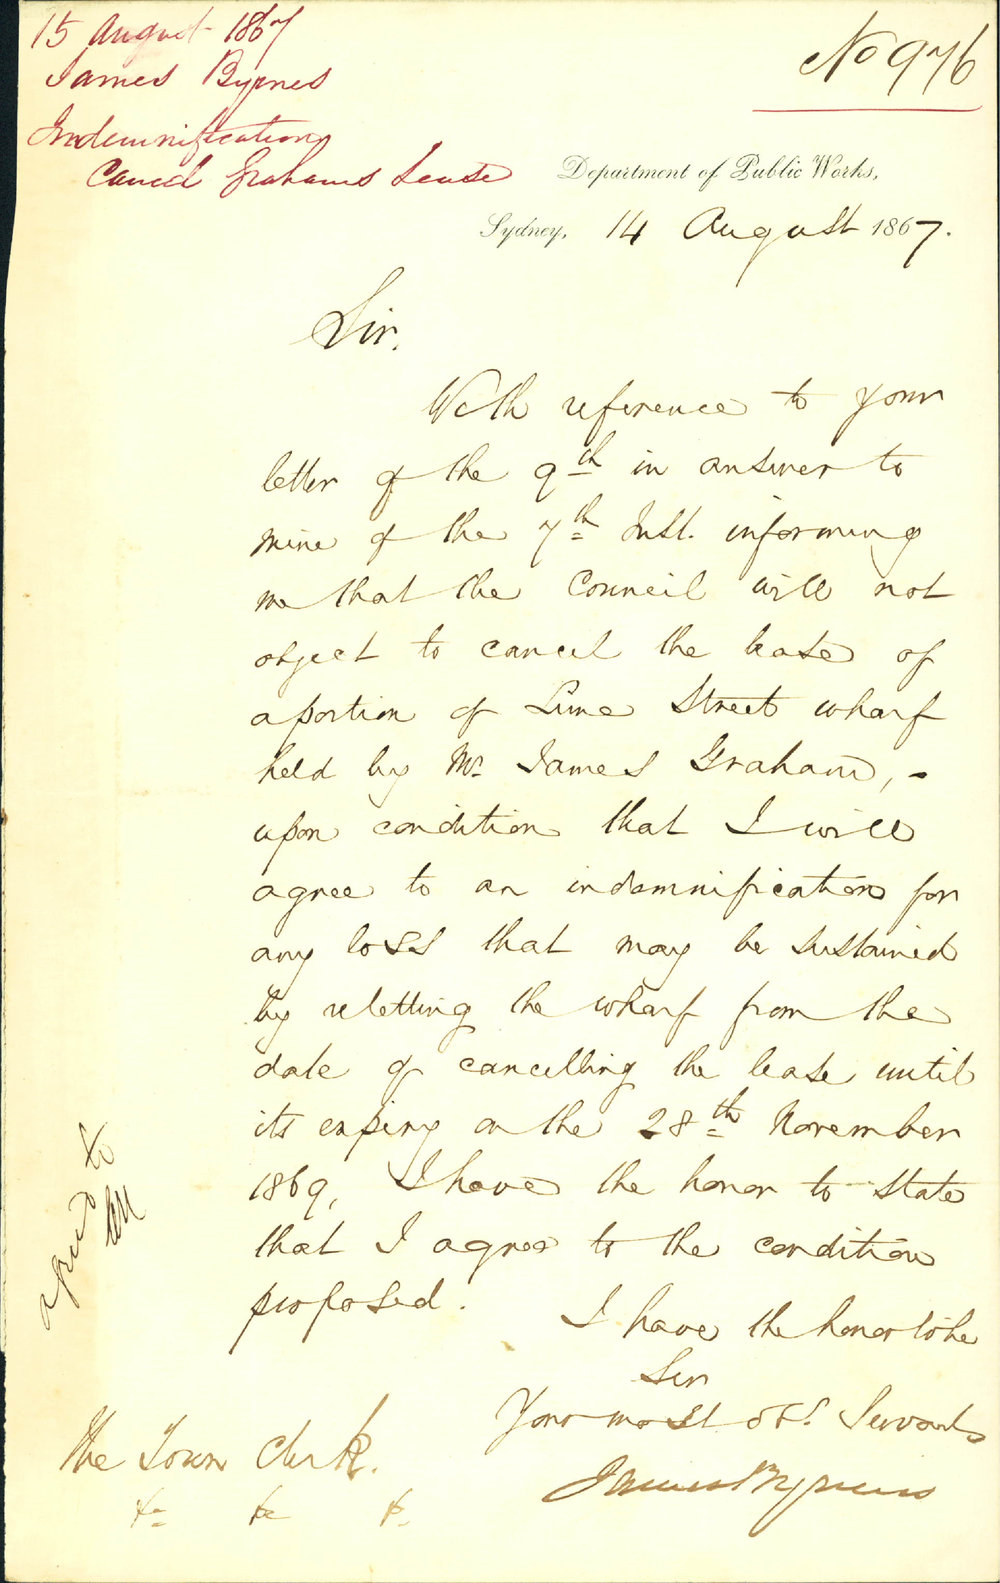 15 August 1867
James Byrnes
Indemnification
Cancel Grahams Lease
No 976
Department of Public Works,
Sydney, 14 August 1867.
Sir.
With reference to your
letter of the 9th in answer to
mine of the 7th Inst. informing
me that the Council will not
object to cancel the lease of
a portion of Lime Street wharf
held by Mr James Graham, -
upon condition that I will
agree to an indemnification for
any loss that may be sustained
by reletting the wharf from the
date of cancelling the lease until
its expiry on the 28th November
1869, I have the honor to state
that I agree to the condition
proposed.
I have the honor to be
Sir
Your most obt. Servant
James Byrnes
The Town Clerk.
&c &c &c
agreed to